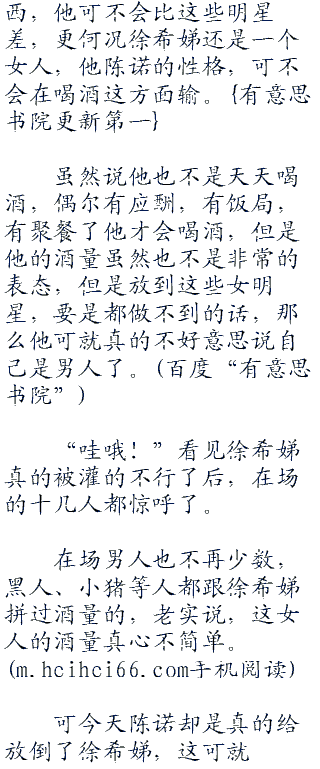 西，他可不会比这些明星
差，更何况徐希娣还是一个
女人，他陈诺的性格，可不
会在喝酒这方面输。{有意思
书院更新第一}
虽然说他也不是天天喝
酒，偶尔有应酬，有饭局，
有聚餐了他才会喝酒，但是
他的酒量虽然也不是非常的
表态，但是放到这些女明
星，要是都做不到的话，那
么他可就真的不好意思说自
己是男人了。(百度“有意思
书院”)
“哇哦！”看见徐希娣
真的被灌的不行了后，在场
的十几人都惊呼了。
在场男人也不再少数，
黑人、小猪等人都跟徐希娣
拼过酒量的，老实说，这女
人的酒量真心不简单。
(m.hcihci66.com手机阅读)
可今天陈诺却是真的给
放倒了徐希娣，这可就